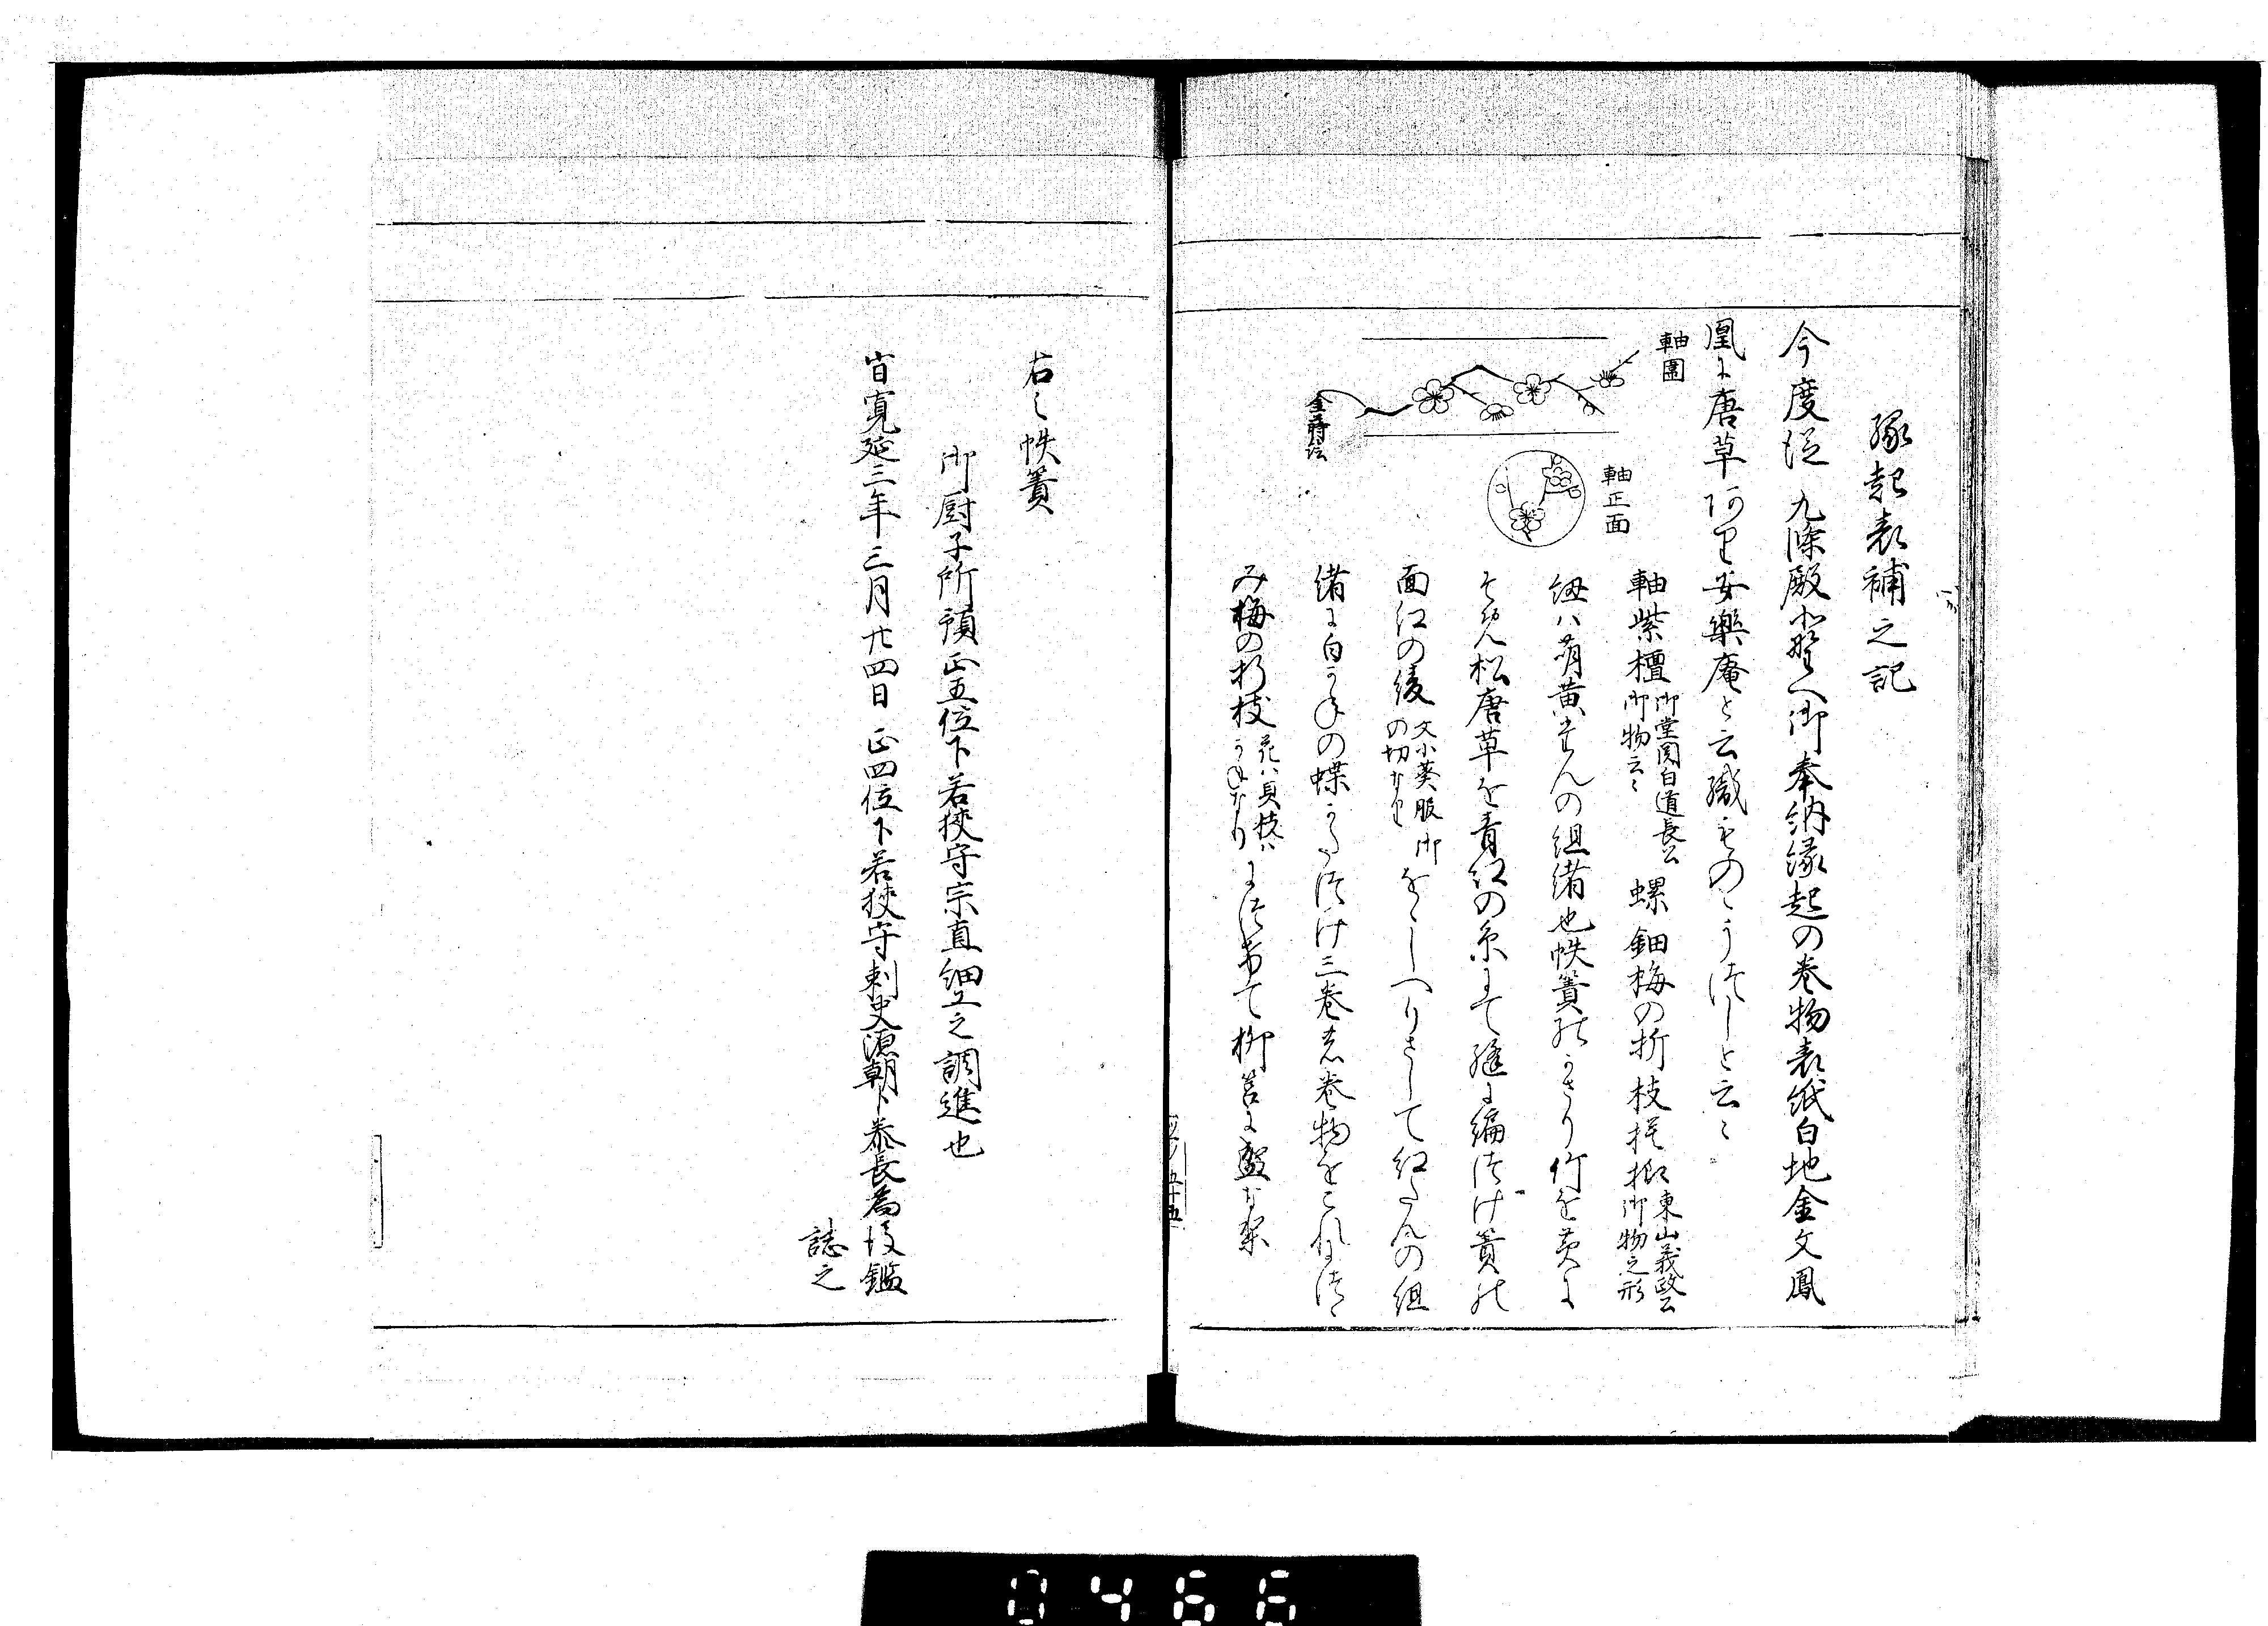 縁起表補之記
今度従 九條殿北野へ御奉納縁起の巻物表紙白地金文鳳
凰に唐草阿り安樂庵と云織ものゝうつしと云々
軸圖
金蒔絵
軸正面
軸紫檀 御堂関白道長公
御物云々 螺鈿梅の折枝 東山義政公
御物之形
紐ハ萌黄 んの組緒也帙簀のかさり竹を黄に
そめ 松唐草を青紅の糸にて 編つけ簀の
面紅の綾 文小葵服御
の切なり をゝしへりさして紅たんの組
緒に白かねの蝶 つけ三巻 巻物をこれに
み梅の折枝 花ハ貝枝ハ
かねなり につけて柳筥に盛
右之帙簀
御厨子所預正五位下若狭守宗直細工之調進也
旹寛延三年三月廿四日 正四位下若狭守刺史源朝 泰長為後鑑
誌之
五十五
0466